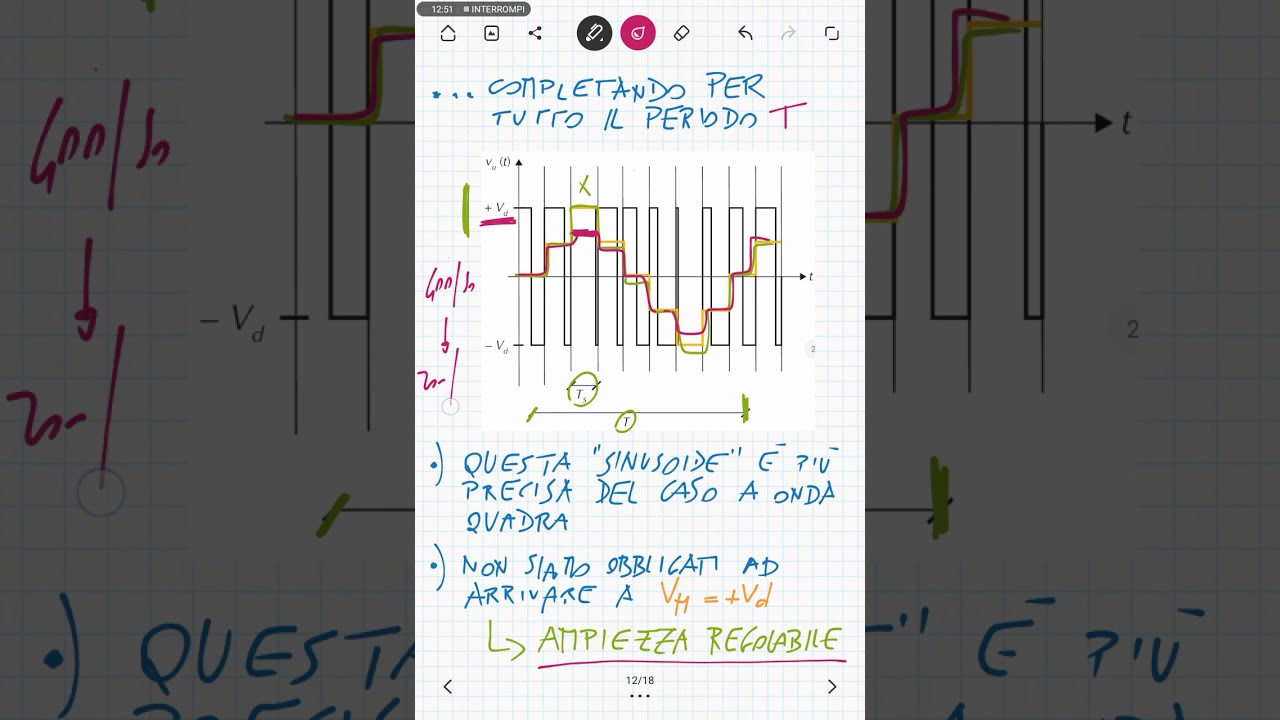 12:51 INTERROMPI
... COMPLETANDO PER
TUTTO IL PERIODO T
vₐ (t)
X
+ V_d
t
- V_d
2
T_s
T
•) QUESTA "SINUSOIDE" È PIÙ
PRECISA DEL CASO A ONDA
QUADRA
•) NON SIAMO OBBLIGATI AD
ARRIVARE A V_M = +V_d
↳ AMPIEZZA REGOLABILE
12/18
- V_d
t
2
QUESTA
" È PIÙ